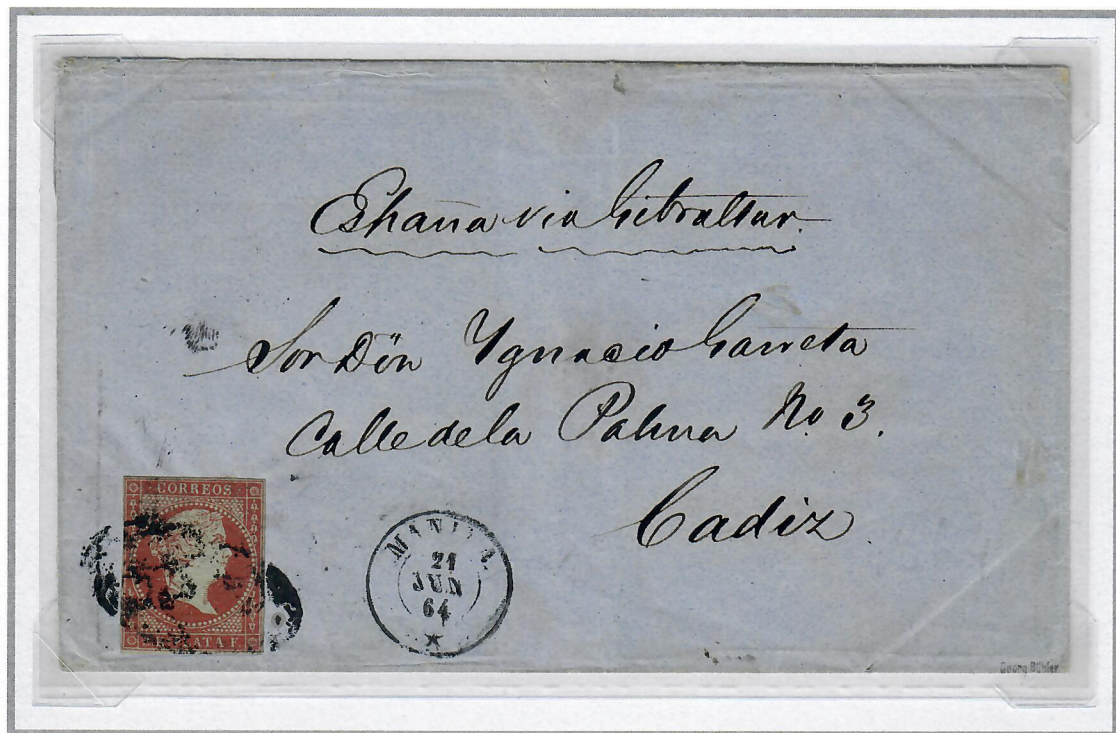 España via Gibraltar.
Sor Dön Ygnacio Garreta
Calle de la Palma No 3.
Cadiz
CORREOS
PLATA F.
MANILA
21
JUN
64
Georg Bühler